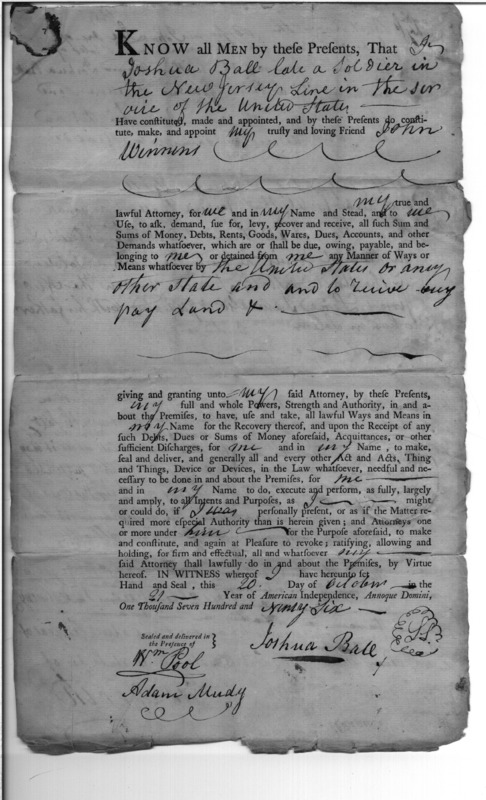 KNOW all MEN by theſe Preſents, That I
Joshua Ball late a Soldier in
the New Jersey Line in the ser
vice of the United States
Have conſtituted, made and appointed, and by theſe Preſents do conſti-
tute, make, and appoint my truſty and loving Friend John
Winnens
my true and
lawful Attorney, for me and in my Name and Stead, and to me
Uſe, to aſk, demand, ſue for, levy, recover and receive, all ſuch Sum and
Sums of Money, Debts, Rents, Goods, Wares, Dues, Accounts, and other
Demands whatſoever, which are or ſhall be due, owing, payable, and be-
longing to me or detained from me any Manner of Ways or
Means whatſoever by the United States or any
other State and and to receive my
pay Land &
giving and granting unto my ſaid Attorney, by theſe Preſents,
my full and whole Powers, Strength and Authority, in and a-
bout the Premiſes, to have, uſe and take, all lawful Ways and Means in
my Name for the Recovery thereof, and upon the Receipt of any
ſuch Debts, Dues or Sums of Money aforeſaid, Acquittances, or other
ſufficient Diſcharges, for me and in my Name, to make,
ſeal and deliver, and generally all and every other Act and Acts, Thing
and Things, Device or Devices, in the Law whatſoever, needful and ne-
ceſſary to be done in and about the Premiſes, for me
and in my Name to do, execute and perform, as fully, largely
and amply, to all Intents and Purpoſes, as I might
or could do, if I was perſonally preſent, or as if the Matter re-
quired more eſpecial Authority than is herein given; and Attorneys one
or more under him for the Purpoſe aforeſaid, to make
and conſtitute, and again at Pleaſure to revoke; ratifying, allowing and
holding, for firm and effectual, all and whatſoever my
ſaid Attorney ſhall lawfully do in and about the Premiſes, by Virtue
hereof. IN WITNESS whereof I have hereunto ſet
Hand and Seal, this 20 Day of October in the
21 Year of American Independence, Annoque Domini,
One Thouſand Seven Hundred and Ninety Six
Sealed and delivered in
the Preſence of
Joshua Ball
Wm Pool
Adam Mudy